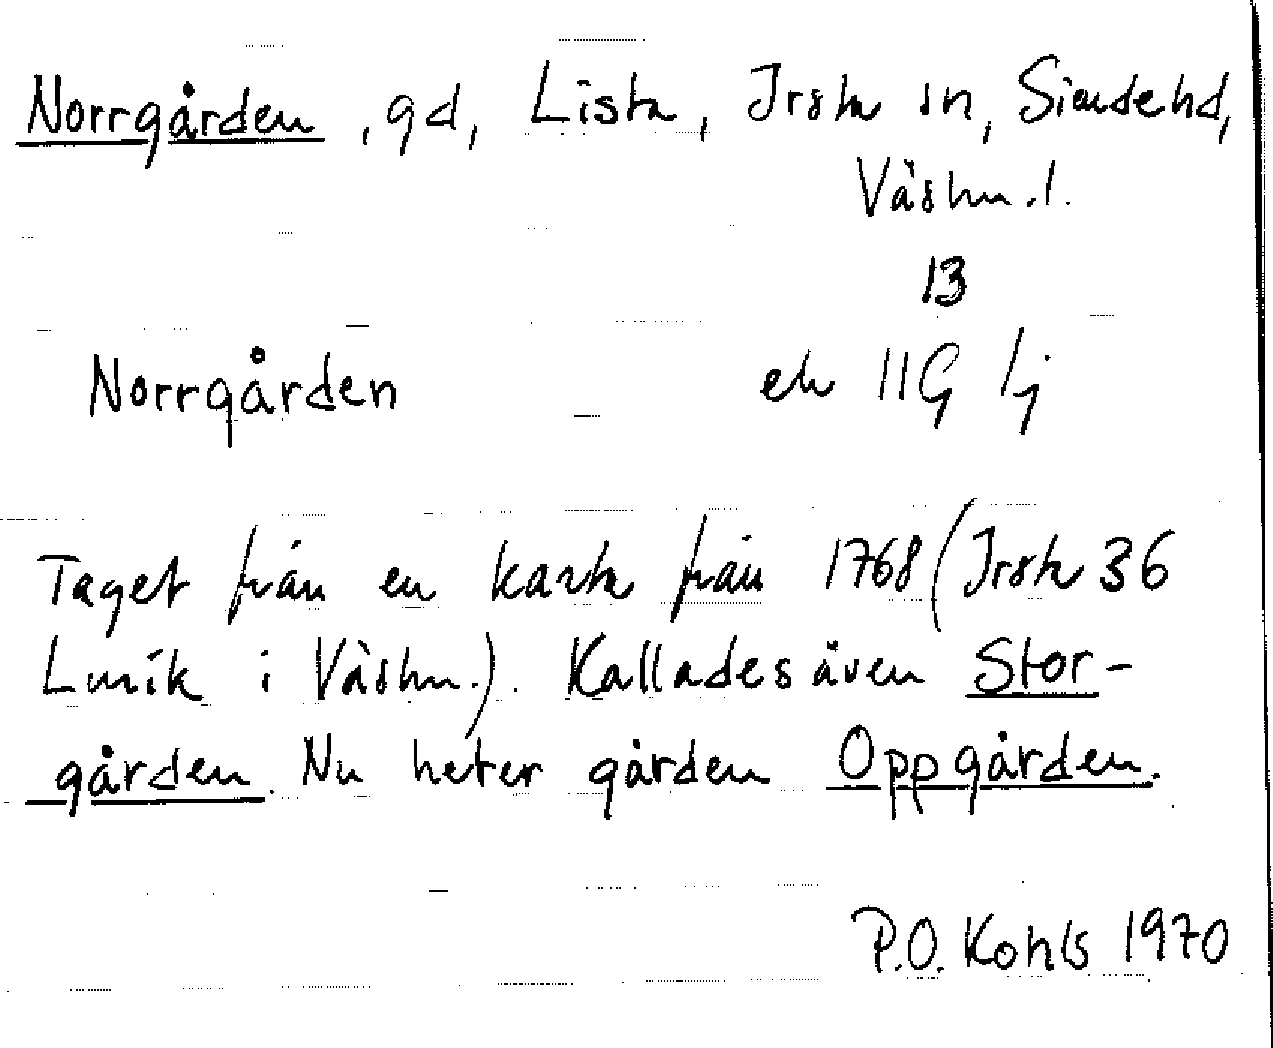 Norrgården, gd, Lista, Irsta sn, Siendehd,
Västm. l.
13
Norrgården ek 11G 1j
Taget från en karta från 1768 (Irsta 36
Lmík i Västm.). Kallades även Stor-
gården. Nu heter gården Oppgården.
P.O. Kohls 1970